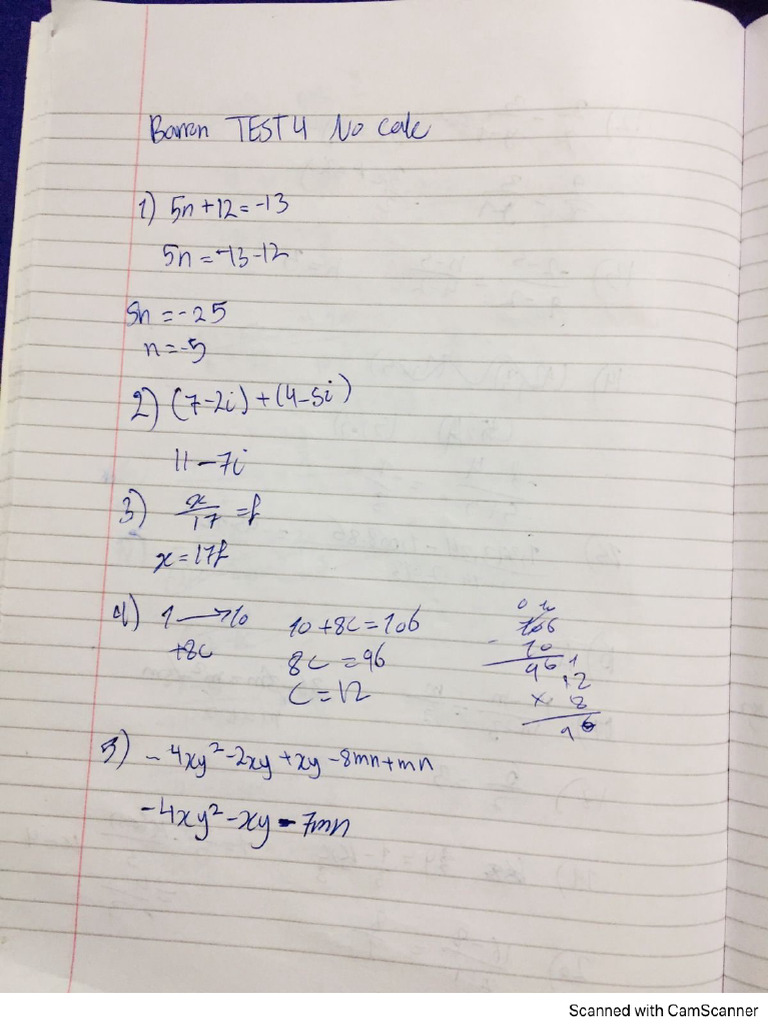 Barron TEST 4 No calc
1) 5n+12=-13
5n=-13-12
5n=-25
n=-5
2) (7-2i)+(4-5i)
11-7i
3) x/17=f
x=17f
4) 1→10
+8c
10+8c=106
8c=96
c=12
106
- 10
96
12
x 8
96
5) -4xy²-2xy+xy-8mn+mn
-4xy²-xy-7mn
Scanned with CamScanner